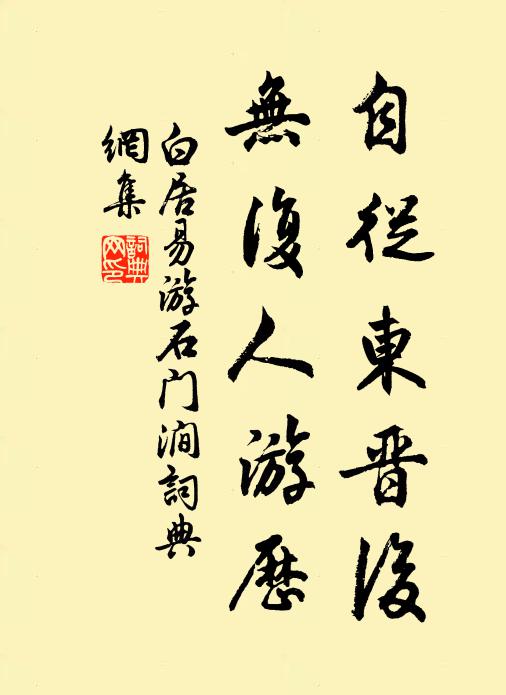 自從東晋後
無復人游歷
白居易游石门澗詞典
網集
詞典
网印